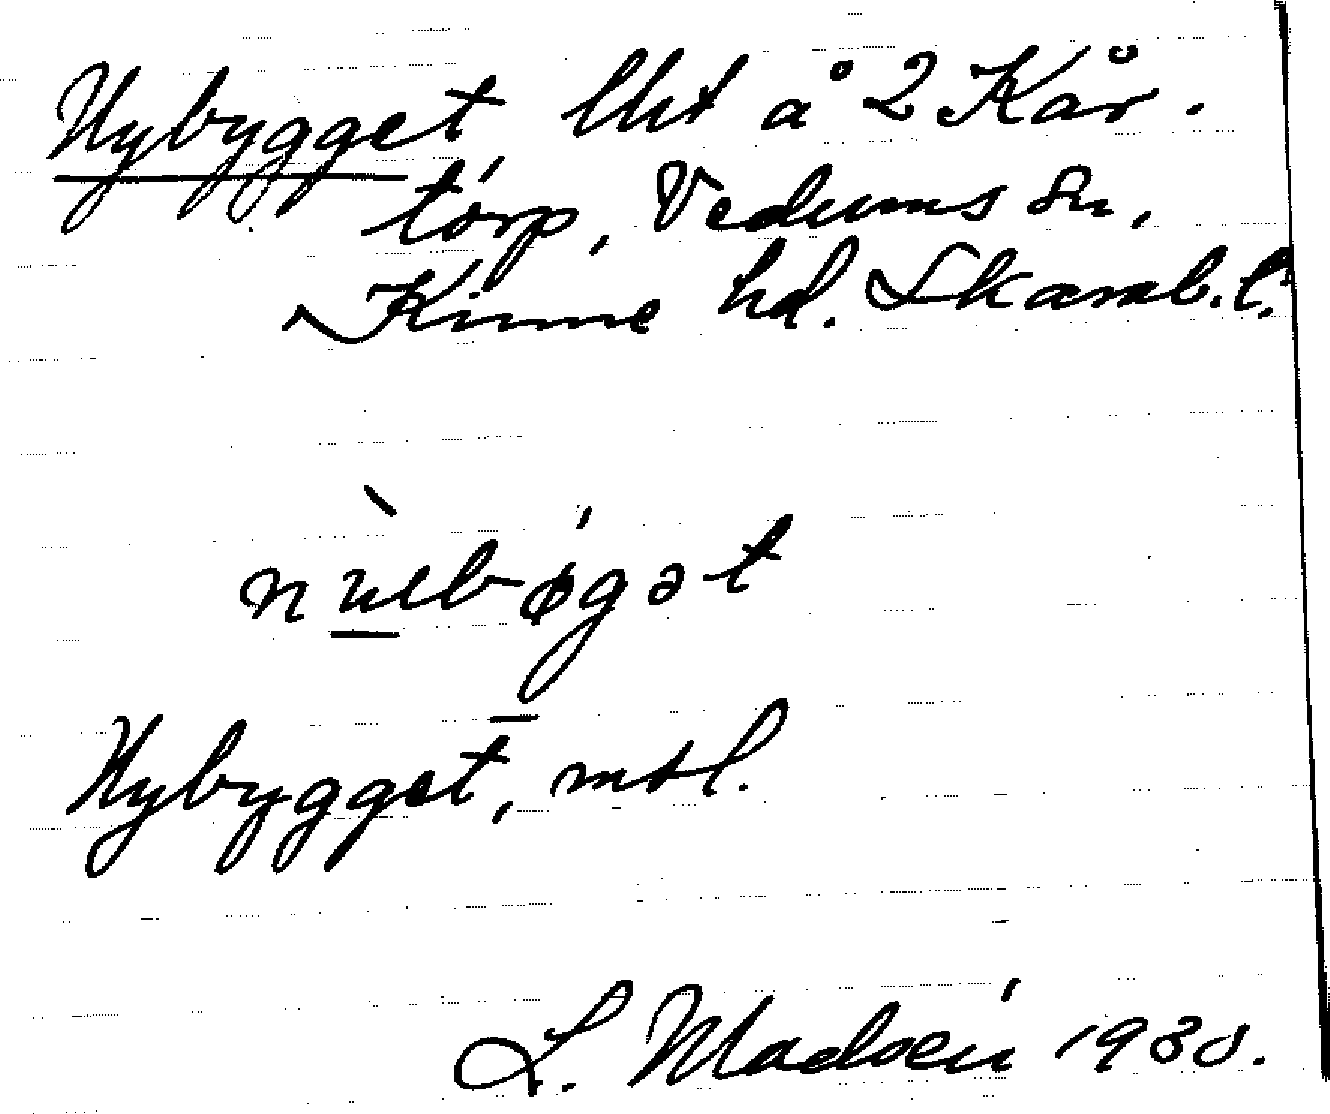 Nybygget, lht å 2 Kår-
torp, Vedums sn,
Kinne hd. Skarab. l.
Nybygget, mtl.
L. Madsén 1930.